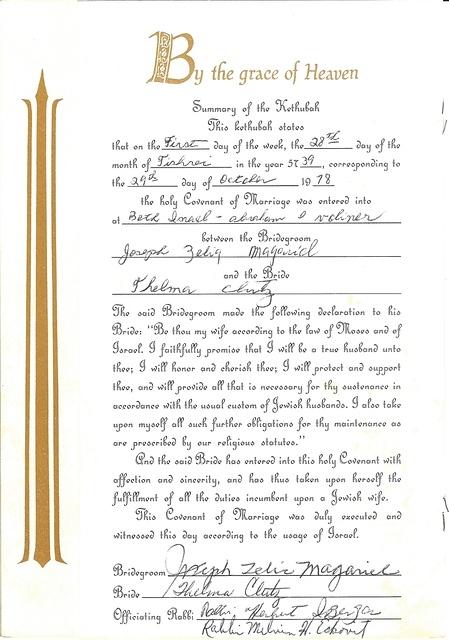 By the grace of Heaven
Summary of the Kethubah
This kethubah states
that on the First day of the week, the 28th day of the
month of Tishrei in the year 5739, corresponding to
the 29th day of October 1978
the holy Covenant of Marriage was entered into
at Beth Israel - Abraham & Voliner
between the Bridegroom
Joseph Zelig Magariel
and the Bride
Thelma Clutz
The said Bridegroom made the following declaration to his
Bride: "Be thou my wife according to the law of Moses and of
Israel. I faithfully promise that I will be a true husband unto
thee; I will honor and cherish thee; I will protect and support
thee, and will provide all that is necessary for thy sustenance in
accordance with the usual custom of Jewish husbands. I also take
upon myself all such further obligations for thy maintenance as
are prescribed by our religious statutes."
And the said Bride has entered into this holy Covenant with
affection and sincerity, and has thus taken upon herself the
fulfillment of all the duties incumbent upon a Jewish wife.
This Covenant of Marriage was duly executed and
witnessed this day according to the usage of Israel.
Bridegroom Joseph Zelig Magariel
Bride Thelma Clutz
Officiating Rabbi Rabbi Herbert Berger
Rabbi H.